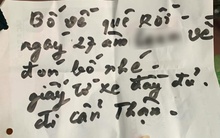 Bố về quê Rồi - về
ngày 27 âm
đón bố nhé.
giấy tờ xe đầy đủ.
đi cẩn Thận.